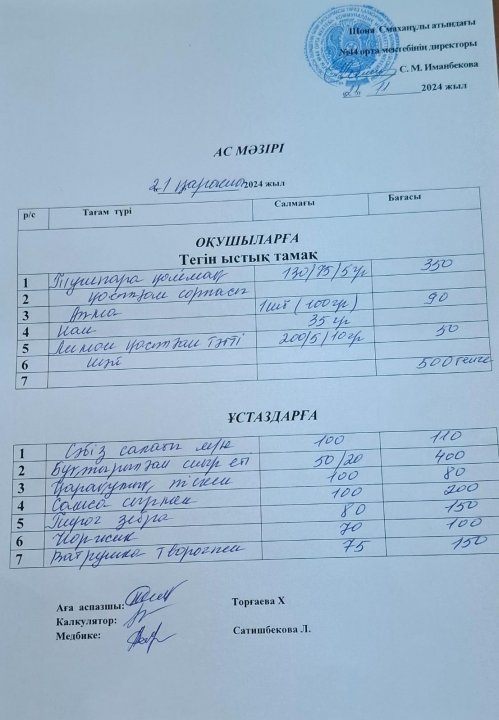 Шона Смаханұлы атындағы
№44 орта мектебінің директоры
С. М. Иманбекова
11 2024 жыл
АС МӘЗІРІ
21 қараша 2024 жыл
р/с Тағам түрі Салмағы Бағасы
ОҚУШЫЛАРҒА
Тегін ыстық тамақ
1 Тұшпара 130/75/5гр 350
2 қосылған сорпасы
3 Алма 1шт (100гр) 90
4 Нан 35 гр
5 Лимон қосылған тәтті 200/5/10гр 50
6 шәй 500 теңге
7
ҰСТАЗДАРҒА
1 Сәбіз салаты 100 110
2 Бұқтырылған сиыр еті 50/20 400
3 Қарақұмық 100 80
4 Самса сырмен 100 200
5 Пирог зебра 80 150
6 70 100
7 Ватрушка творогпен 75 150
Аға аспазшы: Торғаева Х
Калкулятор:
Медбике: Сатишбекова Л.